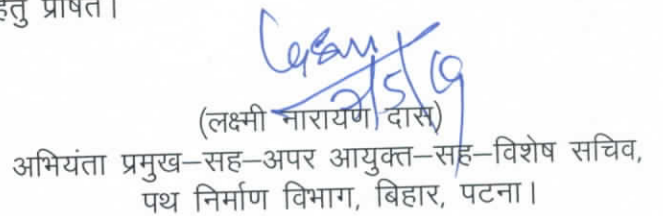 हेतु प्रेषित।
(लक्ष्मी नारायण दास)
अभियंता प्रमुख–सह–अपर आयुक्त–सह–विशेष सचिव,
पथ निर्माण विभाग, बिहार, पटना।